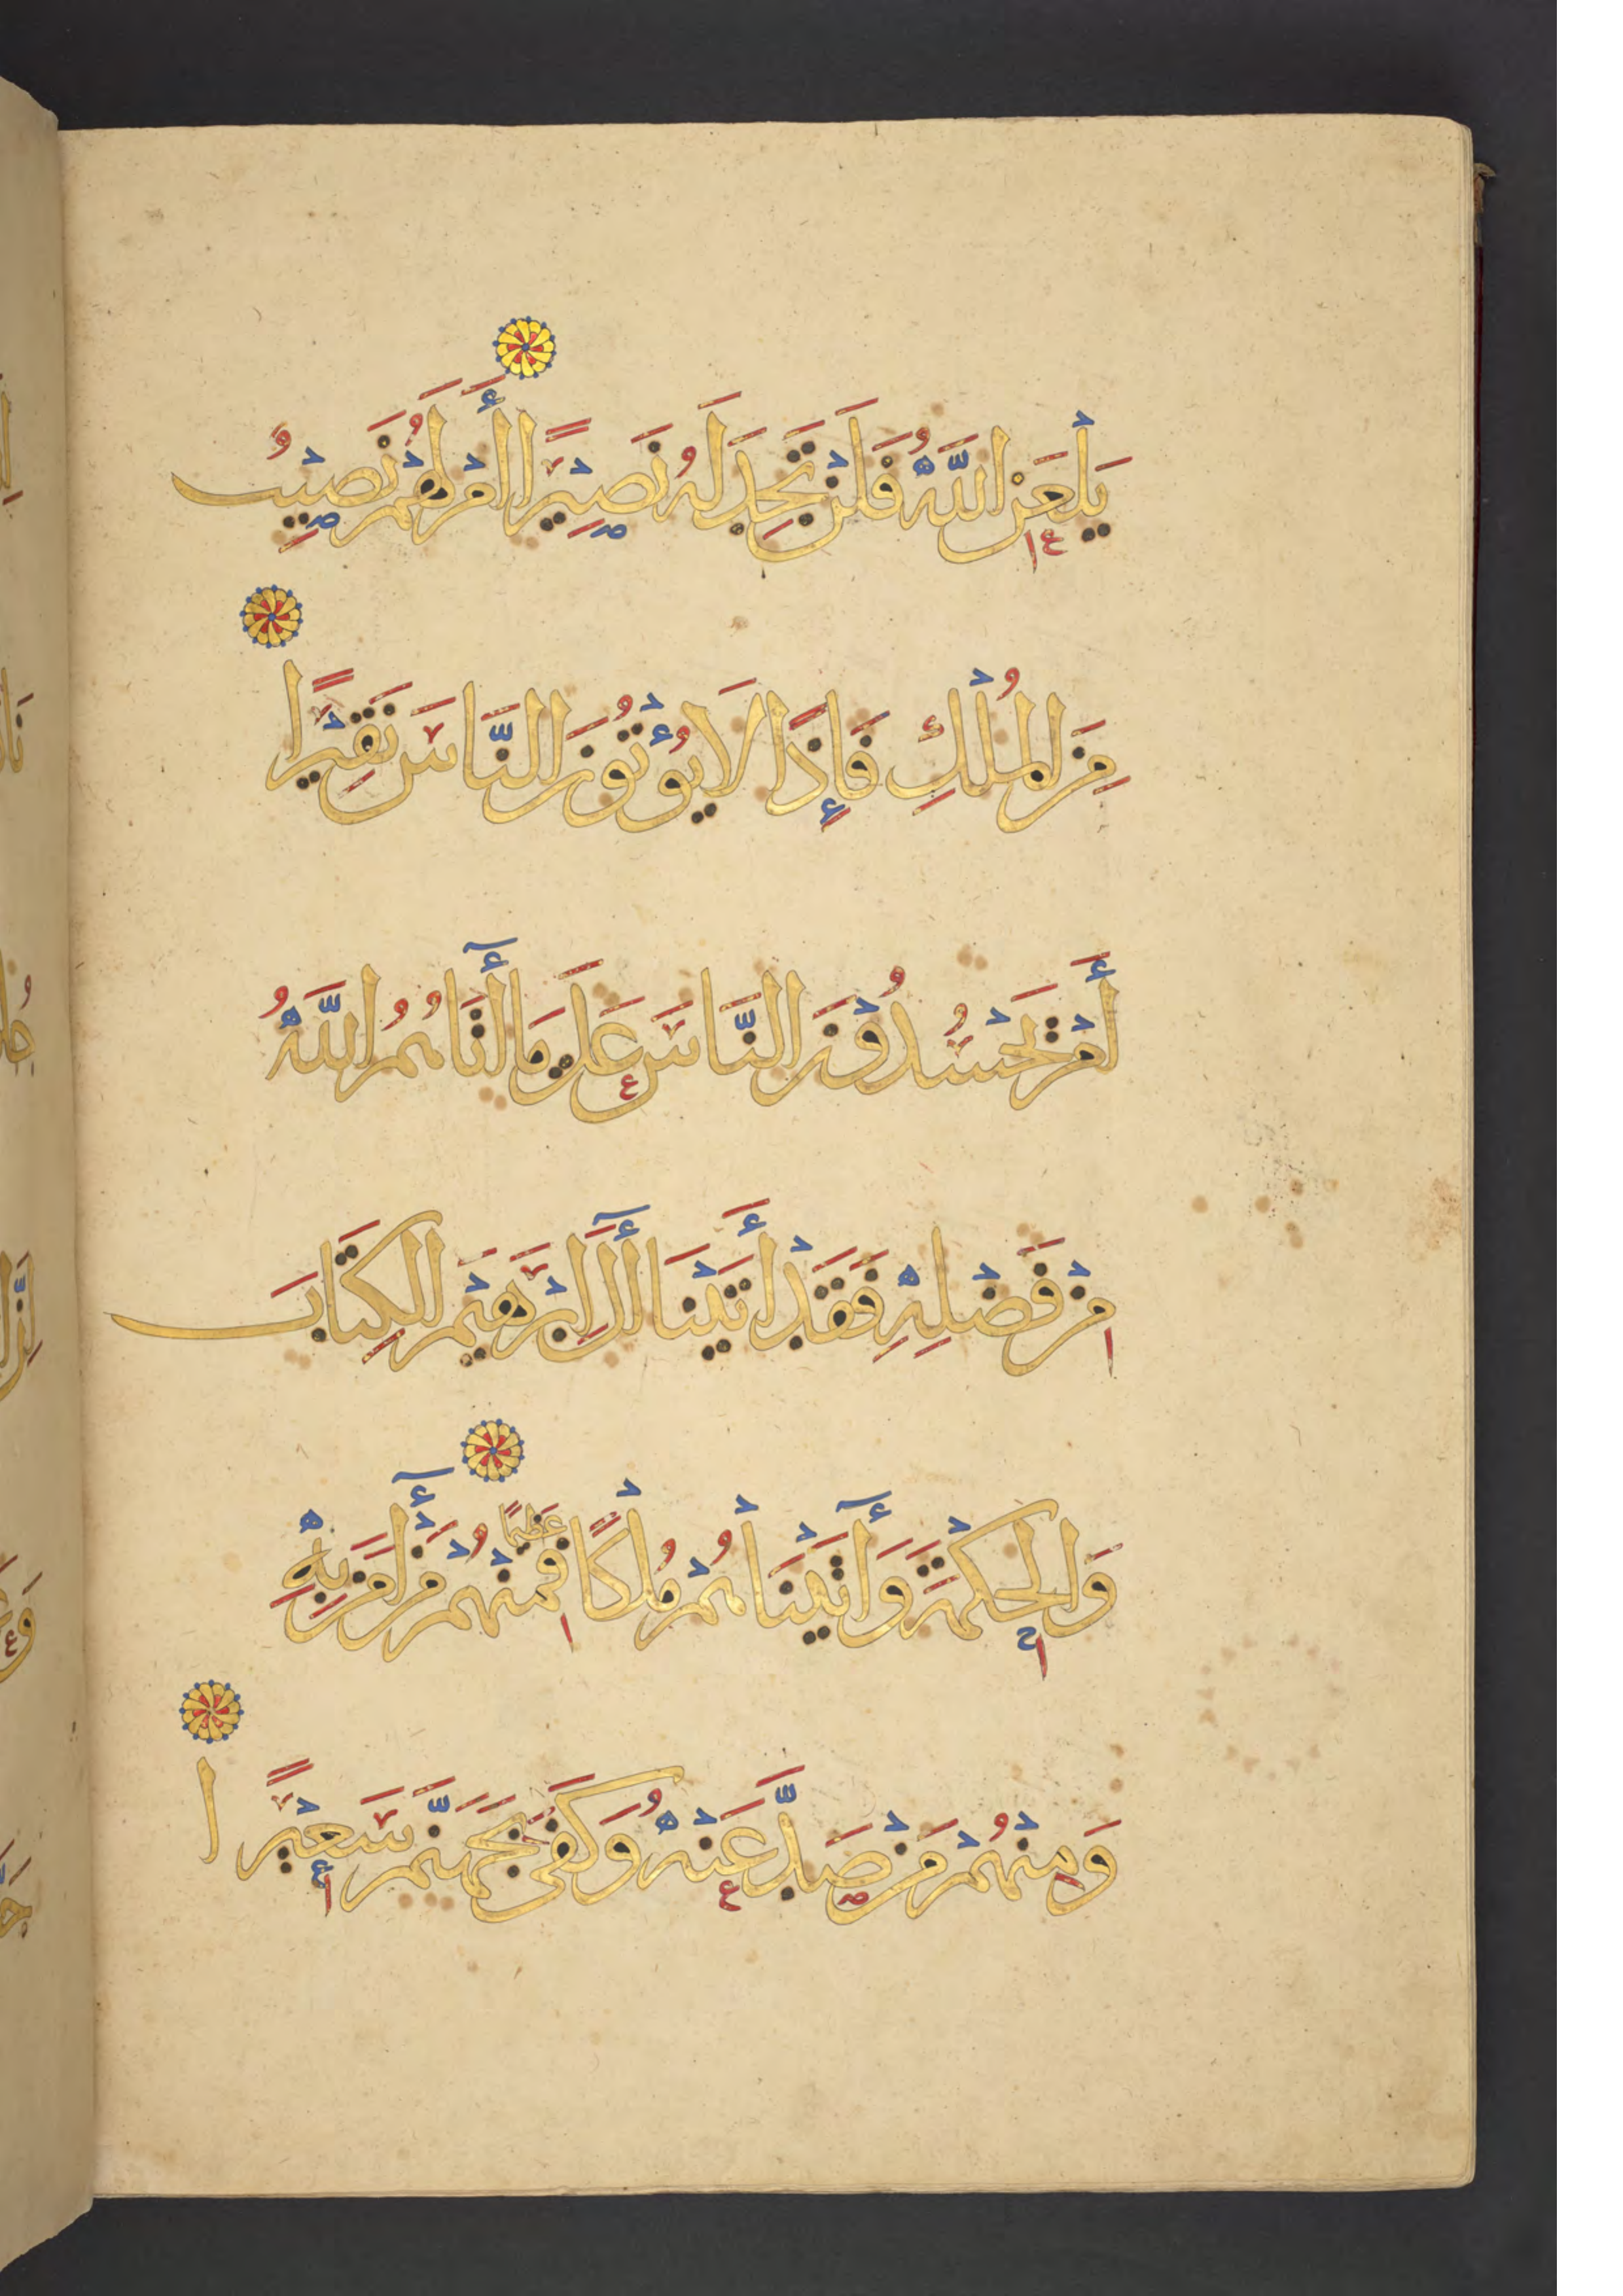 يَلْعَنِ اللَّهُ فَلَنْ تَجِدَ لَهُ نَصِيْرًا أَمْ لَهُمْ نَصِيْبٌ
مِنَ الْمُلْكِ فَإِذًا لَا يُؤْتُوْنَ النَّاسَ نَقِيْرًا
أَمْ يَحْسُدُوْنَ النَّاسَ عَلَى مَا أَتَاهُمُ اللَّهُ
مِنْ فَضْلِهِ فَقَدْ أَتَيْنَا أَلَ إِبْرَهِيْمَ الْكِتَابَ
وَالْحِكْمَةَ وَأَتَيْنَاهُمْ مُلْكًا عَظِيْمًا فَمِنْهُمْ مَنْ أَمَنَ بِهِ
وَمِنْهُمْ مَنْ صَدَّ عَنْهُ وَكَفَى بِجَهَنَّمَ سَعِيْرًا ا